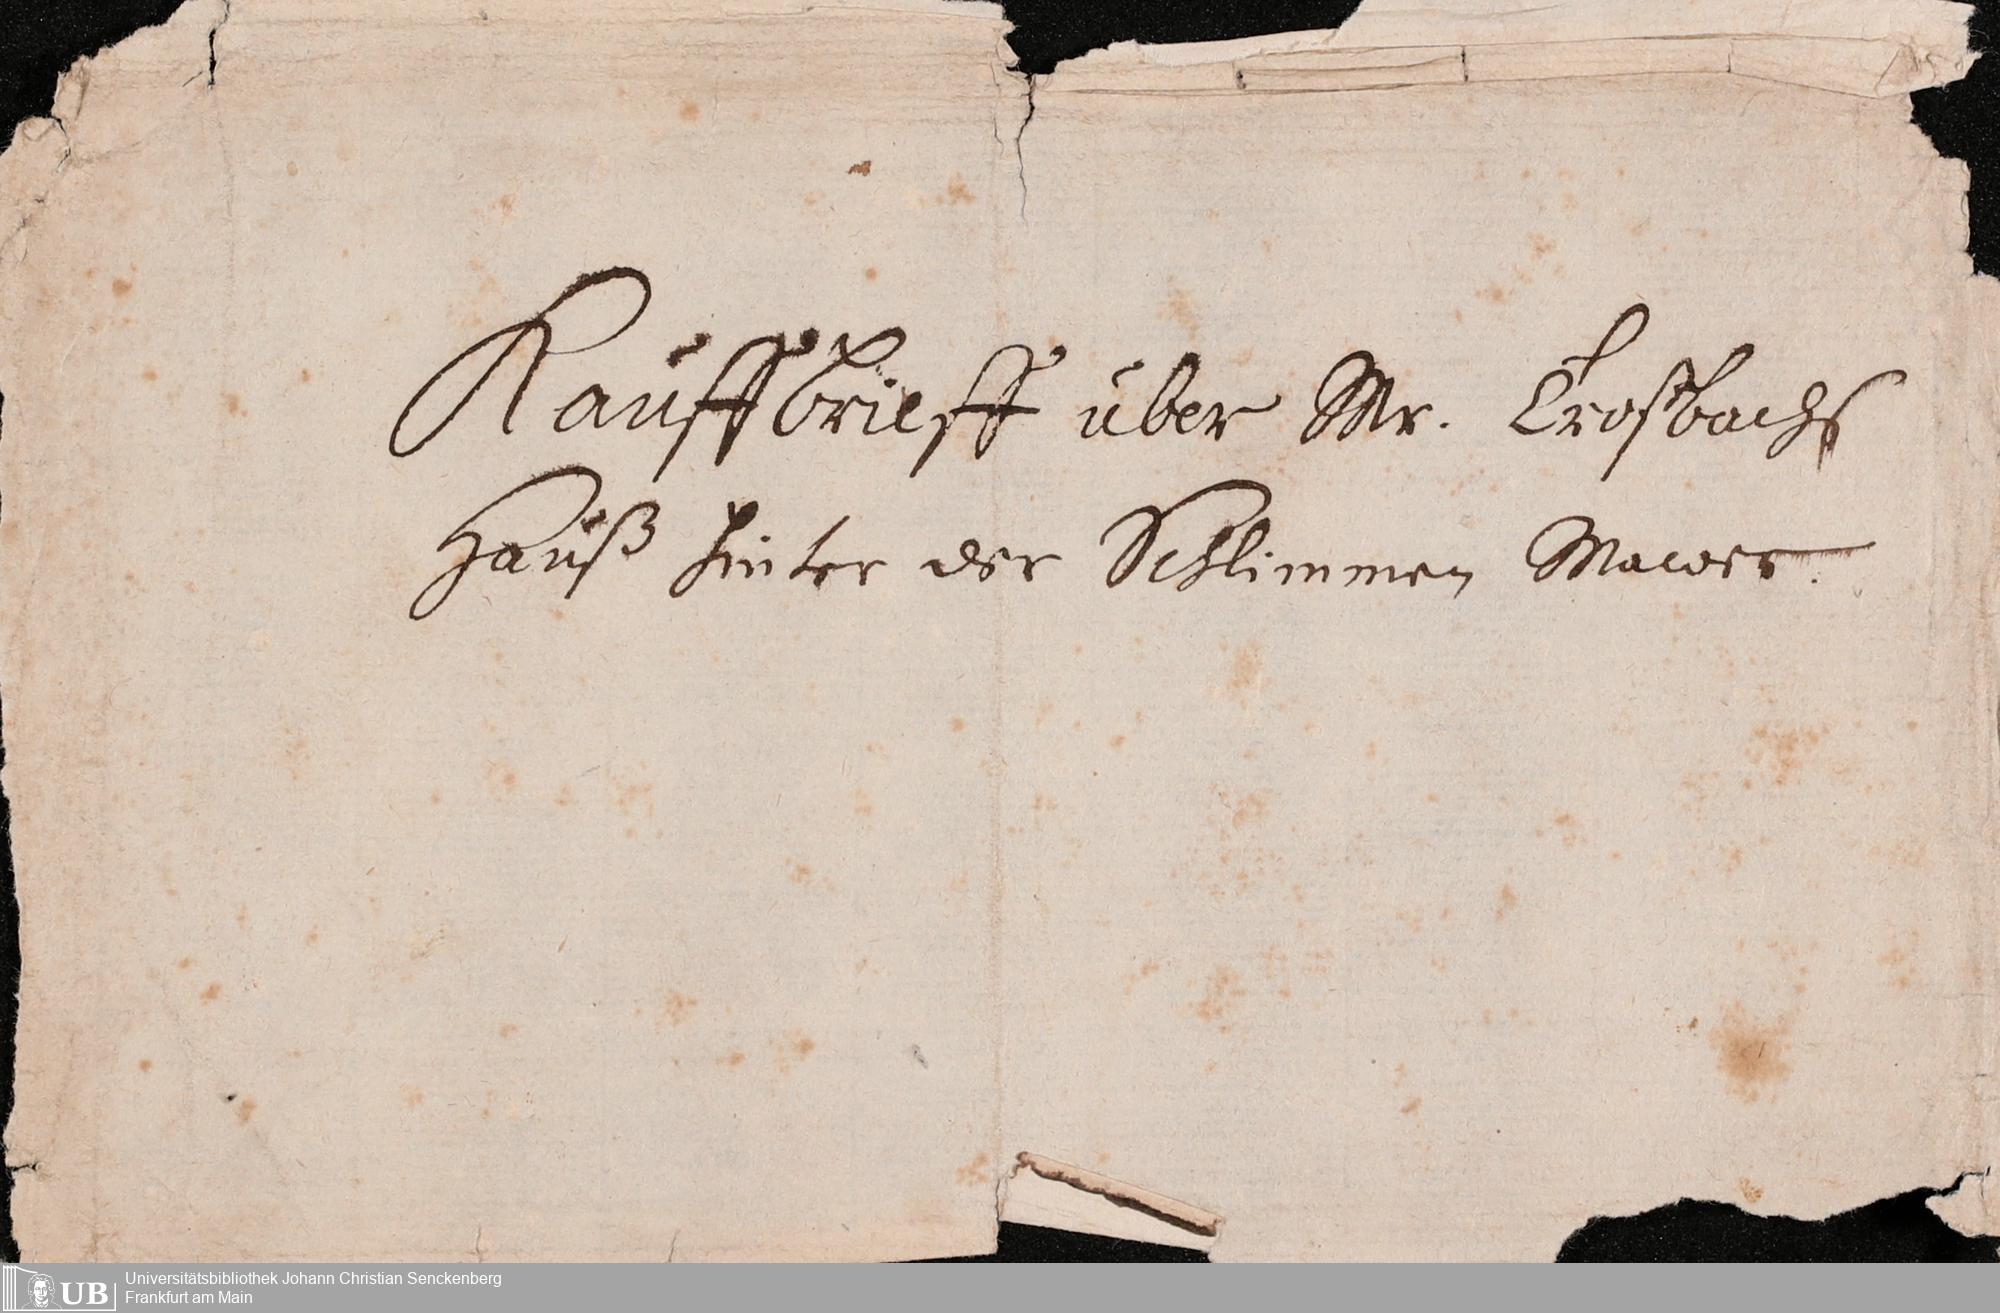 Kauffbrieff über Mr. Crosbachs
Hauß hinter der Schlimmen Mawer.
Universitätsbibliothek Johann Christian Senckenberg
Frankfurt am Main
UB